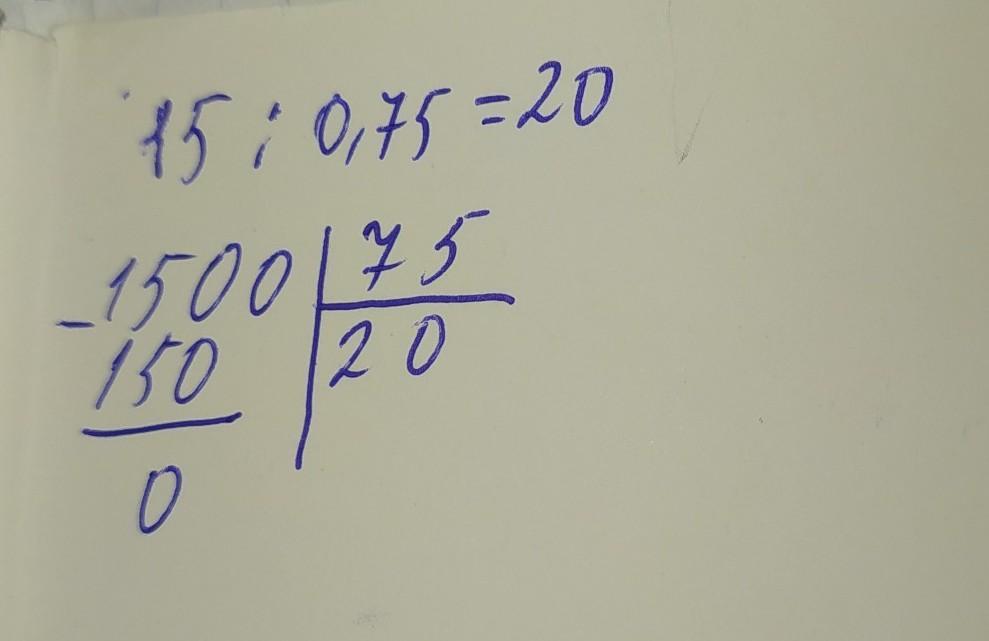 15 : 0,75 = 20
-1500 | 75
150 | 20
0